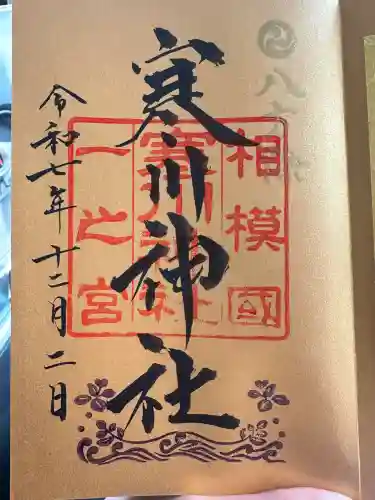 寒川神社
相模國
寒川神社
一之宮
令和七年十二月二日